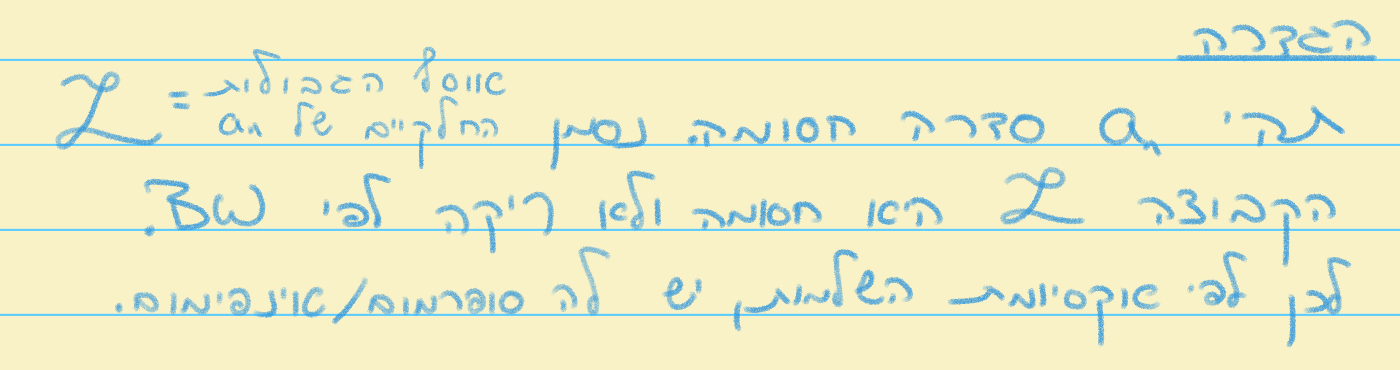 הגדרה
תהי aₙ סדרה חסומה. נסמן ℒ = אוסף הגבולות החלקיים של aₙ
הקבוצה ℒ היא חסומה ולא ריקה לפי BW.
לכן לפי אקסיומת השלמות, יש לה סופרמום/אינפימום.